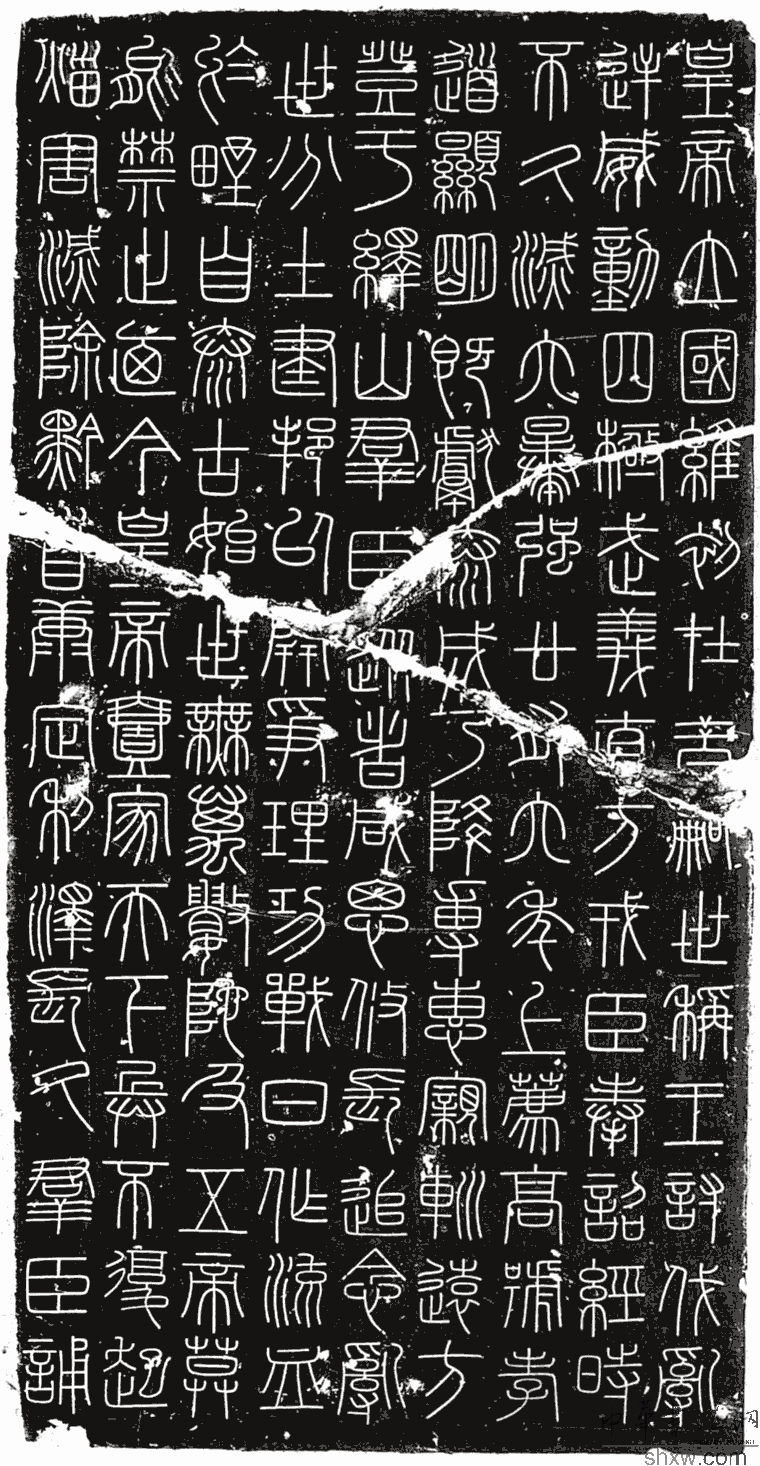 皇帝立國維初在昔嗣世稱王討伐亂
逆威動四極武義直方戎臣奉詔經時
不久滅六暴强廿有六年上薦高號孝
道顯明既獻泰成乃降專惠親𨊠遠方
登于繹山羣臣從者咸思攸長追念亂
世分土建邦以開爭理功戰日作流血
於野自泰古始世無萬數陀及五帝莫
能禁止迺今皇帝壹家天下兵不復起
災害滅除黔首康定利澤長久羣臣誦
shxw.com